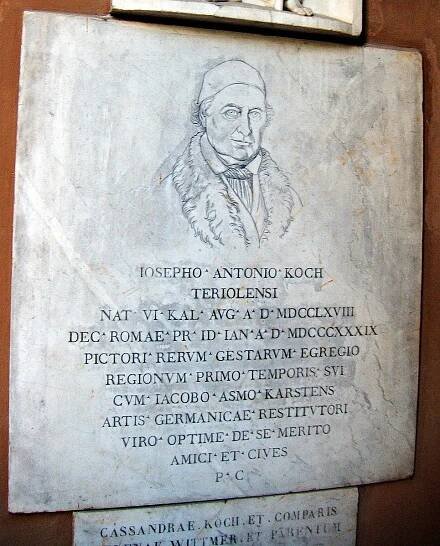 IOSEPHO · ANTONIO · KOCH
TERIOLENSI
NAT · VI · KAL · AVG · A · D · MDCCLXVIII
DEC · ROMAE · PR · ID · IAN · A · D · MDCCCXXXIX
PICTORI · RERVM · GESTARVM · EGREGIO
REGIONVM · PRIMO · TEMPORIS · SVI
CVM · IACOBO · ASMO · KARSTENS
ARTIS · GERMANICAE · RESTITVTORI
VIRO · OPTIME · DE · SE · MERITO
AMICI · ET · CIVES
P · C
CASSANDRAE · KOCH · ET · COMPARIS
WITTMER · ET · PARENTUM